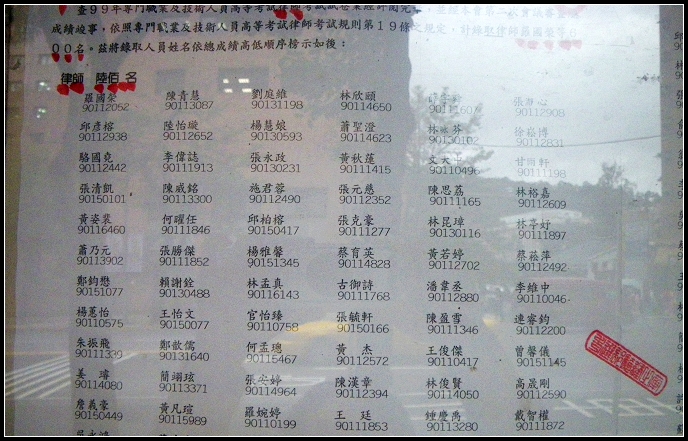 查99年專門職業及技術人員高等考試律師考試
成績竣事，依照專門職業及技術人員高等考試律師考試規則第19條之規定，計錄取律師羅國榮等6
00名。茲將錄取人員姓名依總成績高低順序榜示如後：
律師 陸佰 名
羅國榮 陳青慧 劉庭維 林欣頤
90112062 90113087 90131198 90114650 90111607 90112908
邱彥榕 陸怡璇 楊慧娘 蕭聖澄 林詠芬 徐崧博
90112938 90112652 90130593 90114623 90130102 90112831
駱國竟 李偉誌 張永政 黃秋蓮
90112442 90111913 90130231 90111415 90110496 90111198
張清凱 陳威銘 施君蓉 張元慈 陳思荔 林裕嘉
90150101 90113300 90112490 90112352 90111165 90112609
黃姿裴 何曜任 邱柏榕 張克豪 林昆璋 林亭妤
90116460 90111846 90150417 90111277 90130116 90111897
蕭乃元 張勝傑 楊雅馨 蔡育英 黃若婷 蔡菘萍
90113902 90111852 90151345 90114828 90112702 90112492
鄭鈞懋 賴謝銓 林孟真 古御詩 潘韋丞 李維中
90151077 90130488 90116143 90111768 90112880 90110046
楊蕙怡 王怡文 官怡臻 張毓軒 陳盈雪 連睿鈞
90110575 90150077 90110758 90150166 90111346 90112200
朱振飛 鄭歆儒 何孟璁 黃 杰 王俊傑 曾馨儀
90111339 90131640 90115467 90112572 90110417 90151145
姜 璋 簡翊玹 張安婷 陳漢章 林俊賢 高晟剛
90114080 90113371 90114964 90112394 90114050 90112590
詹義豪 黃凡瑄 羅婉婷 王 廷 鍾慶禹 戴智權
90150449 90115989 90110199 90111853 90113280 90111872